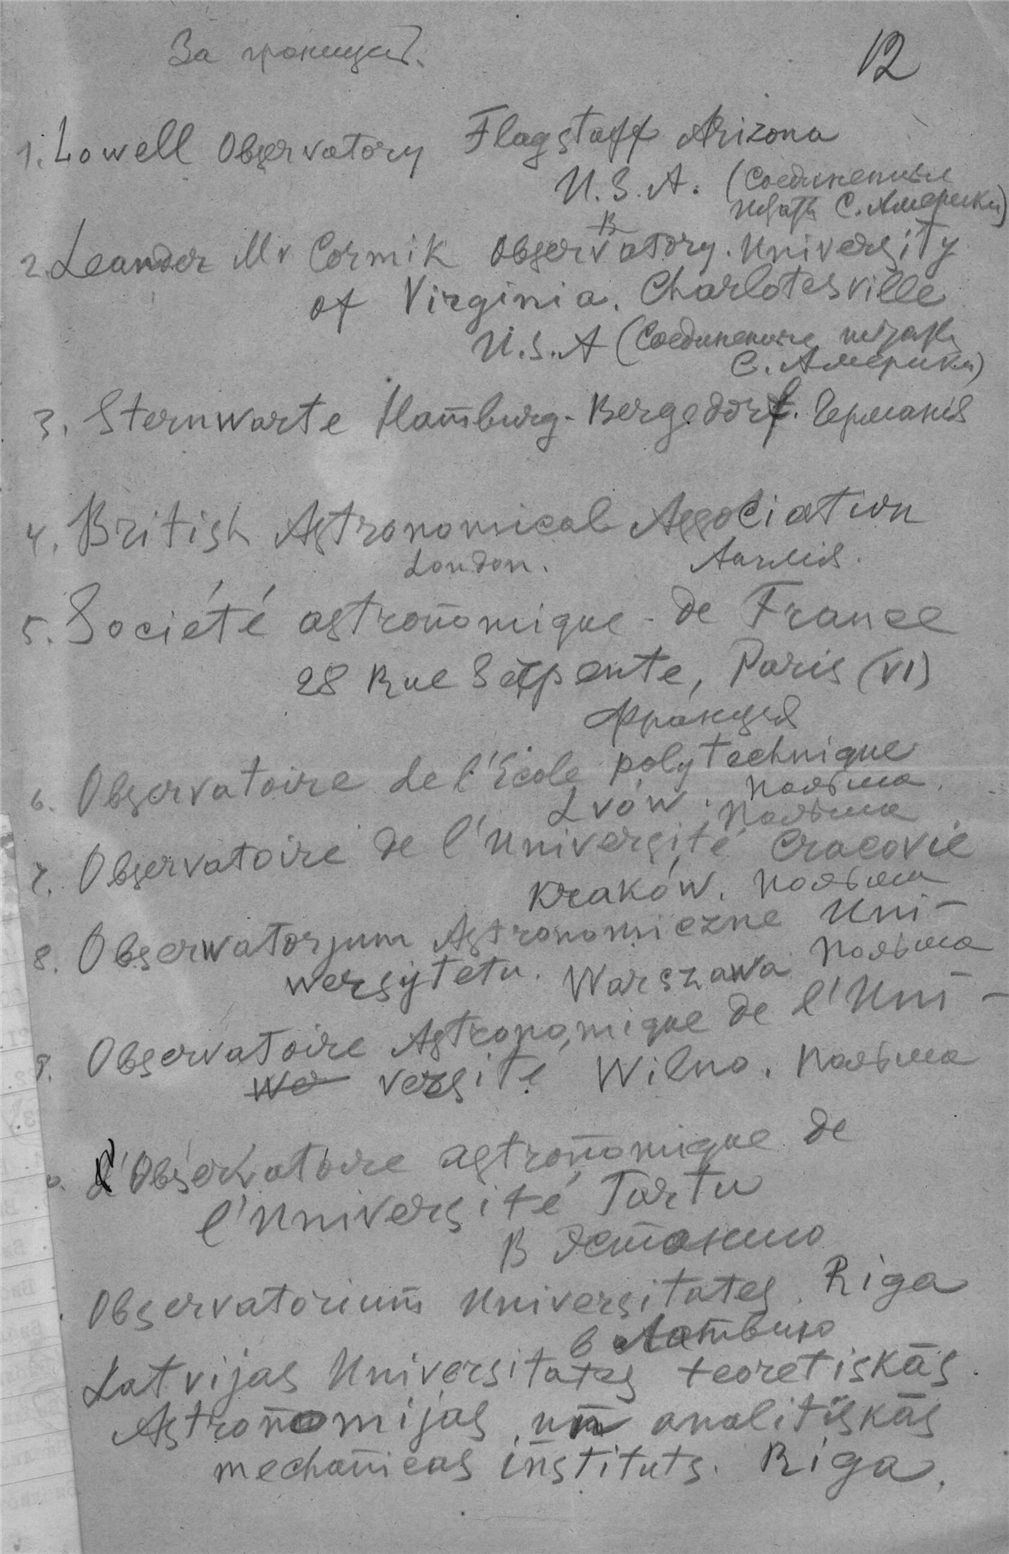 За границей.
12
1. Lowell Observatory Flagstaff Arizona
U.S.A. (Соединенные
штаты С. Америки)
2. Leander Mc Cormik Observatory. University
of Virginia. Charlotesville
U.S.A (Соединенные штаты
С. Америки)
3. Sternwarte Hamburg-Bergedorf. Германия
4. British Astronomical Association
London. Англия.
5. Société astronomique de France
28 Rue Serpente, Paris (VI)
Франция
6. Observatoire de l'Ecole polytechnique
Lvów. Польша.
Польша
7. Observatoire de l'Université Cracovie
Kraków. Польша
8. Obserwatorjum Astronomiczne Uni-
wersytetu. Warszawa Польша
9. Observatoire Astronomique de l'Uni-
we versité Wilno. Польша
0. L'Observatoire astronomique de
l'Université Tartu
в Эстонию
Observatorium Universitates. Riga
в Латвию
Latvijas Universitates teoretiskās
Astronomijas un analitiskās
mechanicas instituts. Riga.